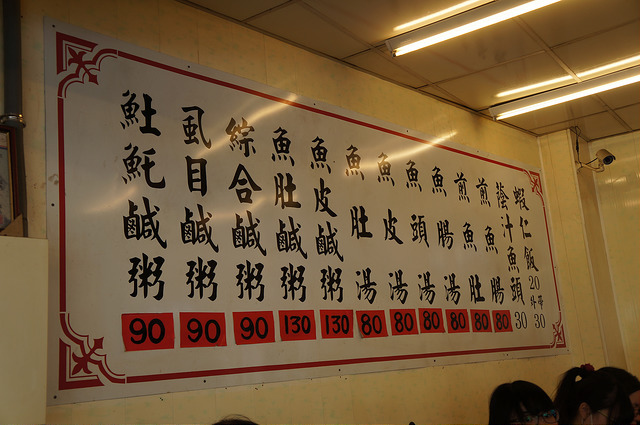 𩵚魠鹹粥 90
虱目鹹粥 90
綜合鹹粥 90
魚肚鹹粥 130
魚皮鹹粥 130
魚肚湯 80
魚皮湯 80
魚頭湯 80
魚腸湯 80
煎魚肚 80
煎魚腸 80
蔭汁魚頭 30
蝦仁飯 20 外帶 30